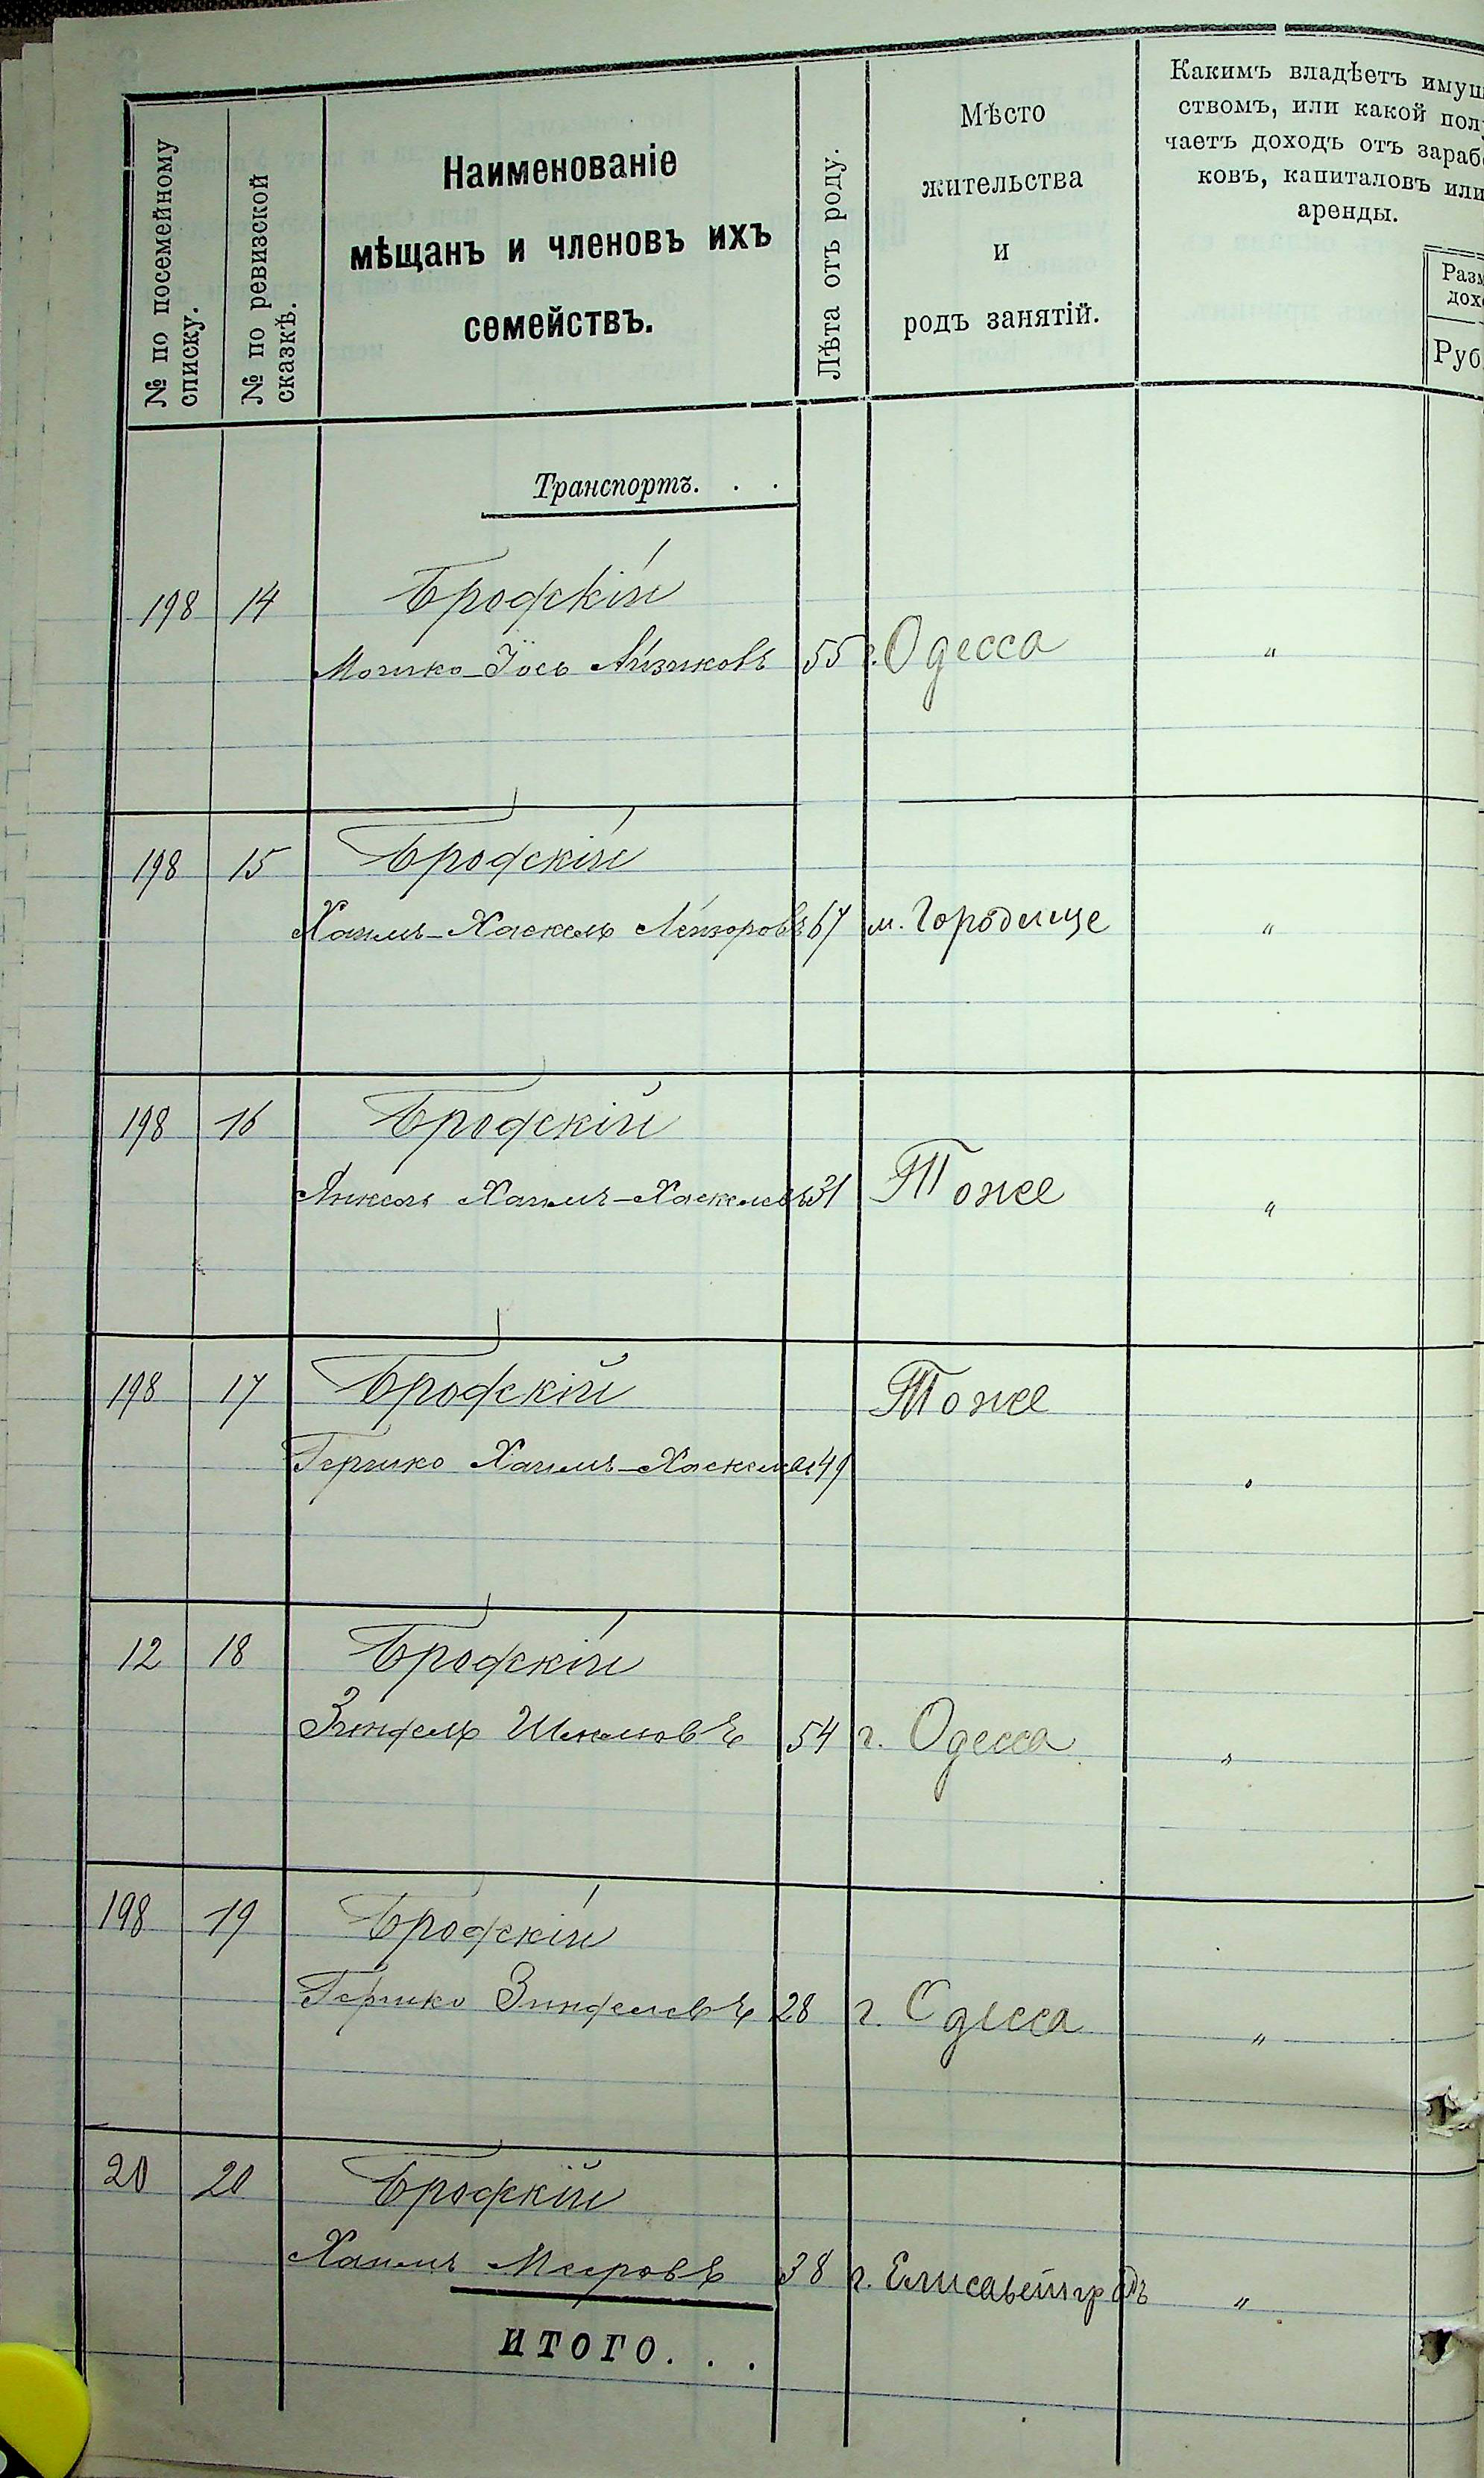 № по посемейному
списку.
№ по ревизской
сказкѣ.
Наименованіе
мѣщанъ и членовъ ихъ
семействъ.
Лѣта отъ роду.
Мѣсто
жительства
и
родъ занятій.
Какимъ владѣетъ имущ
ствомъ, или какой пол
чаетъ доходъ отъ зараб
ковъ, капиталовъ или
аренды.
Разм
дох
Руб
Транспортъ. . .
198 14 Бродскій
Мошко-Іось Айзиковъ 55 г. Одесса "
198 15 Бродскій
Хаимъ-Хаскель Лейзоровъ 67 м. Городище "
198 16 Бродскій
Янкель Хаимъ-Хаскелевъ 31 Тоже "
198 17 Бродскій Тоже
Гершко Хаимъ-Хаскелев 49
12 18 Бродскій
Зиндель Шлемовъ 54 г. Одесса "
198 19 Бродскій
Гершко Зинделевъ 28 г. Одесса "
20 20 Бродскій
Хаимъ Мееровъ 38 г. Елисаветградъ "
ИТОГО. . .